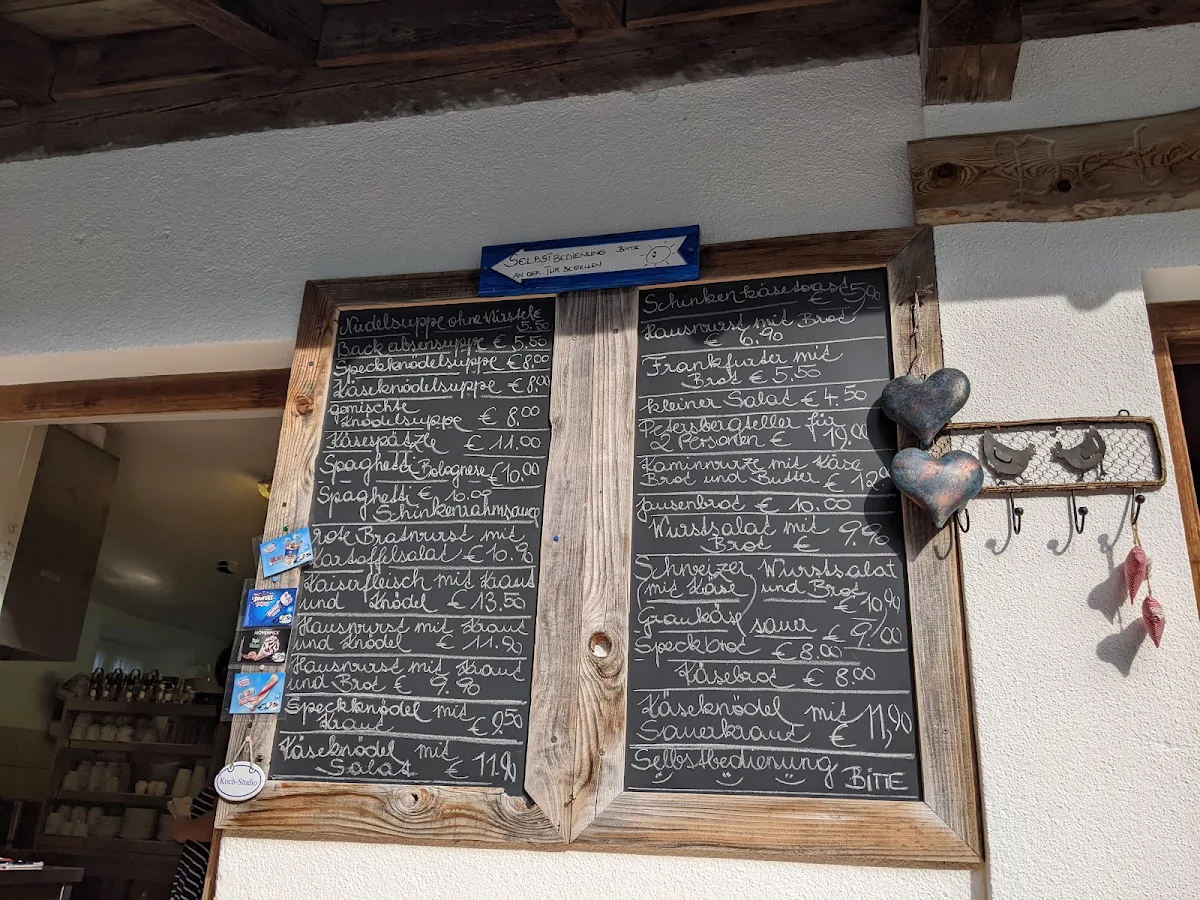 SELBSTBEDIENUNG BITTE
AN DER TÜR BESTELLEN
Nudelsuppe ohne Würstel €
5.50
Backerbsensuppe € 5.50
Speckknödelsuppe € 8.00
Käseknödelsuppe € 8.00
gemischte
Knödelsuppe € 8.00
Käsespätzle € 11.00
Spaghetti Bolognese € 10.00
Spaghetti € 10.00
Schinkenrahmsauce
rote Bratwurst mit
Kartoffelsalat € 10.90
Kaiserfleisch mit Kraut
und Knödel € 13.50
Hauswurst mit Kraut
und Knödel € 11.90
Hauswurst mit Kraut
und Brot € 9.90
Speckknödel mit
Kraut € 9.50
Käseknödel mit
Salat € 11.90
Schinkenkäsetoast
€ 5.90
Hauswurst mit Brot
€ 6.90
Frankfurter mit
Brot € 5.50
kleiner Salat € 4.50
Petersbergteller für
2 Personen € 19.00
Kaminwurze mit Käse
Brot und Butter € 12
Jausenbrot € 10.00
Wurstsalat mit
Brot € 9.90
Schweizer Wurstsalat
(mit Käse) und Brot
€ 10.90
Graukäse sauer € 9.00
Speckbrot € 8.00
Käsebrot € 8.00
Käseknödel mit
Sauerkraut € 11,90
Selbstbedienung
BITTE
MÖVENPICK
Koch-Studio